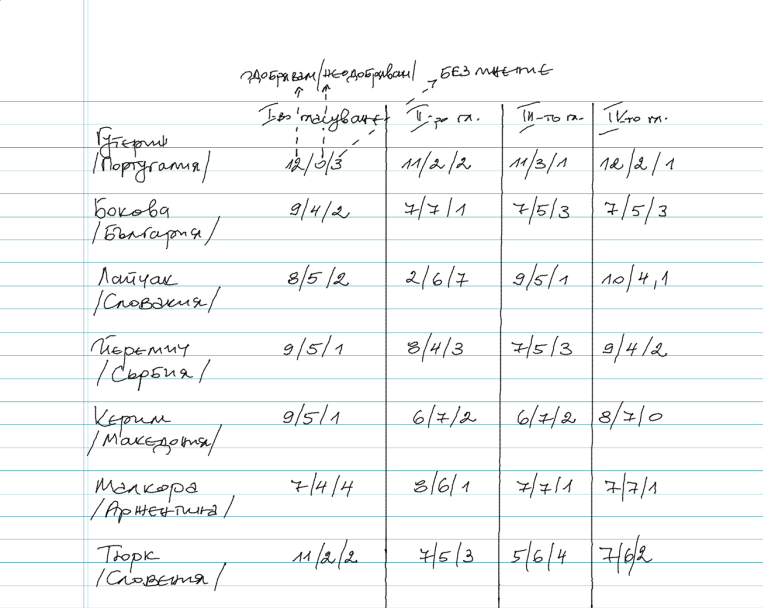 одобрявам/неодобрявам/ БЕЗ МНЕНИЕ
I-во гласуване II-ро гл. III-то гл. IV-то гл.
Гутериш
/Португалия/ 12/0/3 11/2/2 11/3/1 12/2/1
Бокова 9/4/2 7/7/1 7/5/3 7/5/3
/България/
Лайчак 8/5/2 2/6/7 9/5/1 10/4,1
/Словакия/
Йеремич 9/5/1 8/4/3 7/5/3 9/4/2
/Сърбия/
Керим 9/5/1 6/7/2 6/7/2 8/7/0
/Македония/
Малкора 7/4/4 8/6/1 7/7/1 7/7/1
/Аржентина/
Тюрк 11/2/2 7/5/3 5/6/4 7/6/2
/Словения/